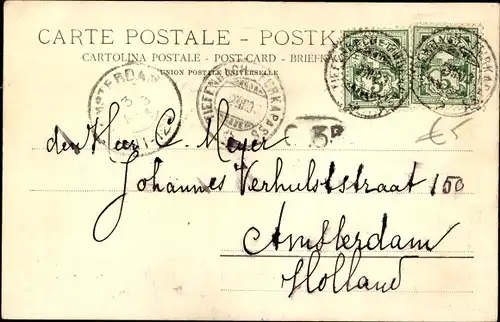 CARTE POSTALE - POSTK
CARTOLINA POSTALE - POST CARD - BRIEFK
UNION POSTALE UNIVERSELLE
AMSTERDAM
TIEFENBACH FURKAPASS
den Heer C. Meyer
Johannes Verhulststraat 150
Amsterdam
Holland